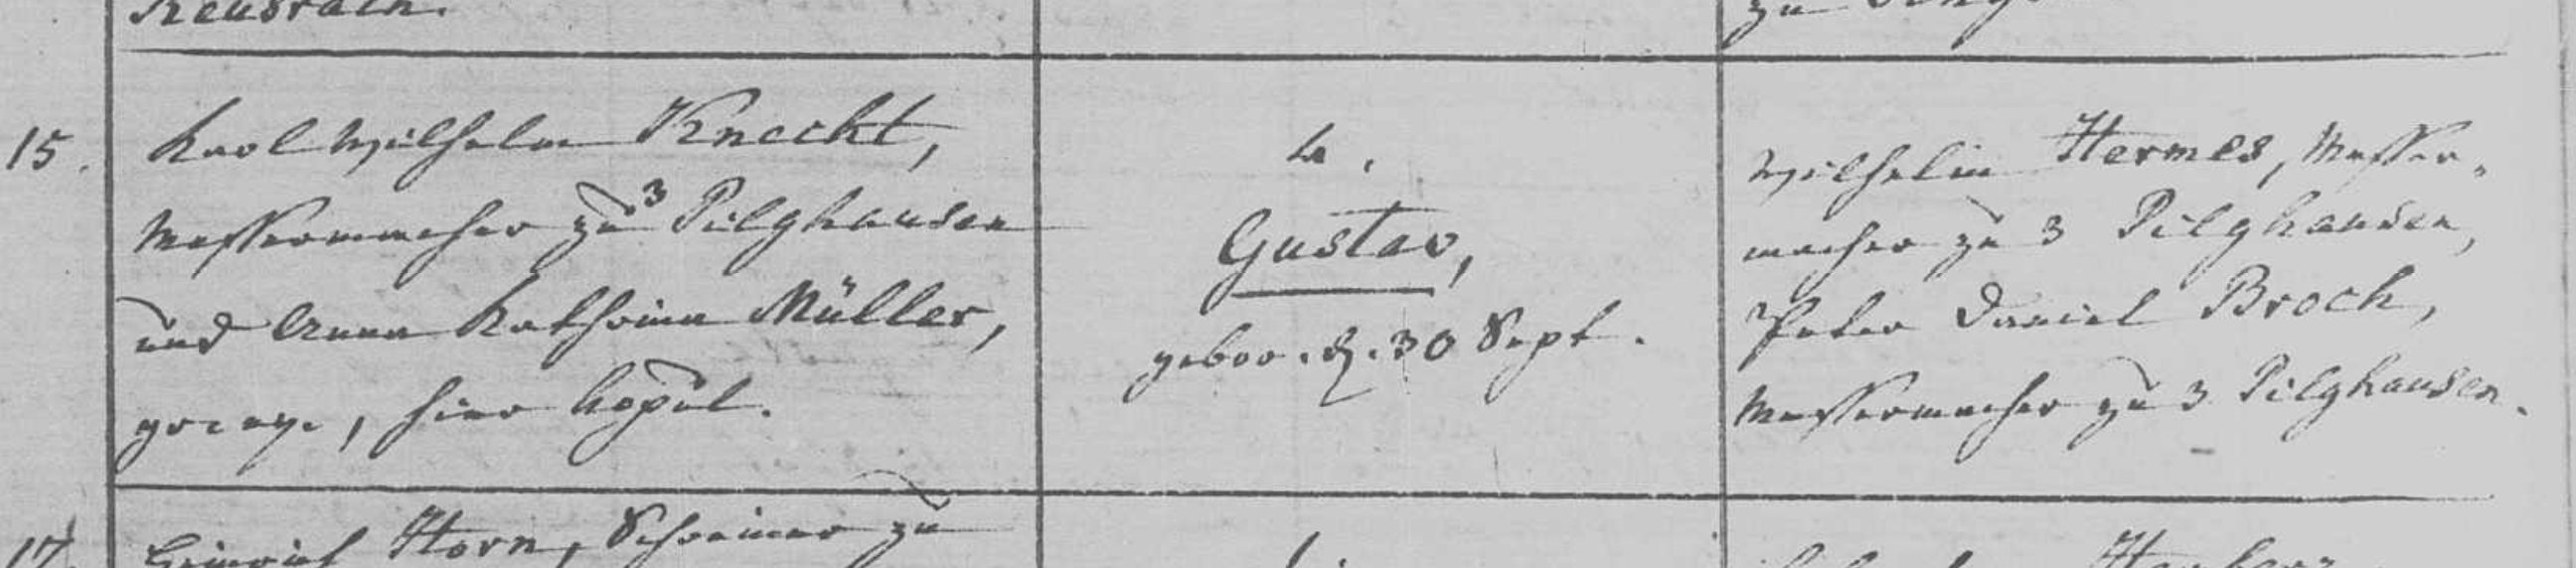 Reusrath.
zu
15.
Karl Wilhelm Knecht,
Messermacher zu 3 Pilghausen
und Anna Kathrina Müller,
hier kopul.
4.
Gustav,
gebor. d. 30 Sept.
Wilhelm Hermes, Messer-
macher zu 3 Pilghausen,
Peter Daniel Broch,
Messermacher zu 3 Pilghausen.
17.
Heinrich Horn, Schreiner zu